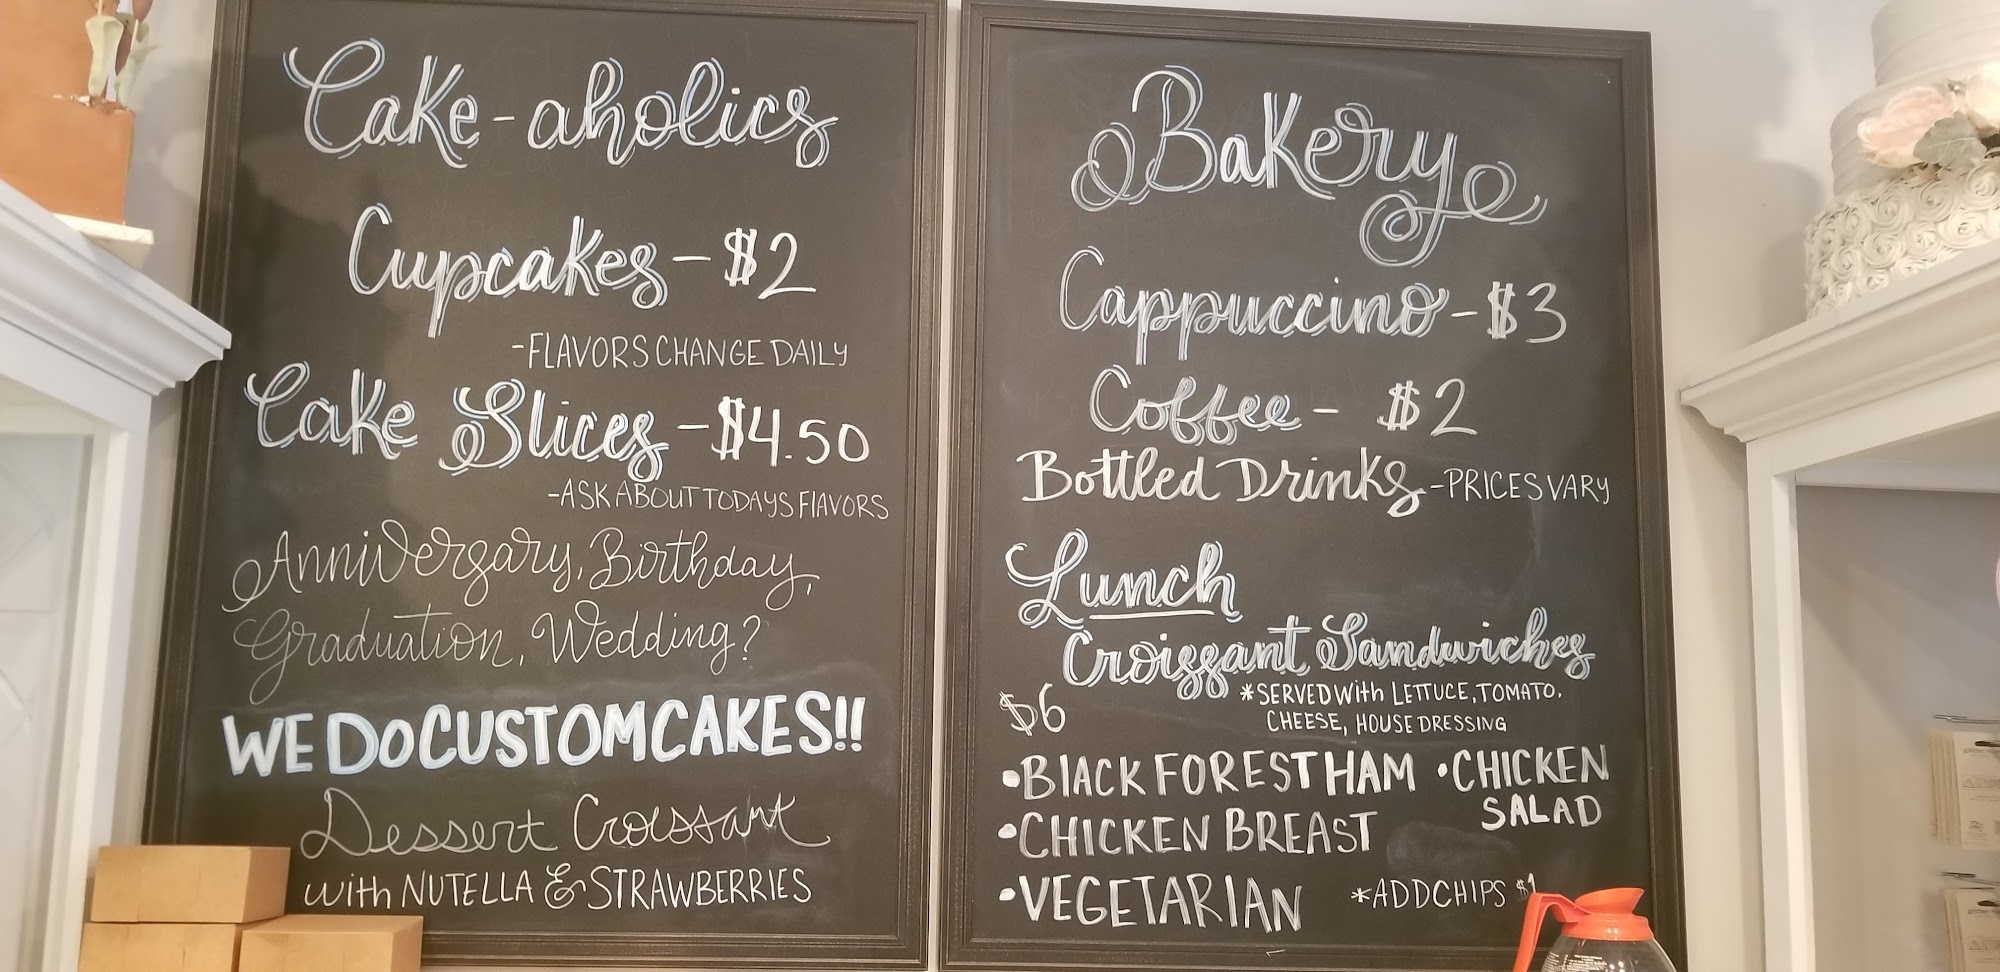 Cake-aholics
Cupcakes - $2
-FLAVORS CHANGE DAILY
Cake Slices - $4.50
-ASK ABOUT TODAYS FLAVORS
Anniversary, Birthday,
Graduation, Wedding?
WE DO CUSTOM CAKES!!
Dessert Croissant
with NUTELLA & STRAWBERRIES
Bakery
Cappuccino - $3
Coffee - $2
Bottled Drinks - PRICES VARY
Lunch
Croissant Sandwiches
$6
*SERVED WITH LETTUCE, TOMATO,
CHEESE, HOUSE DRESSING
•BLACK FOREST HAM
•CHICKEN
SALAD
•CHICKEN BREAST
•VEGETARIAN
*ADD CHIPS $1